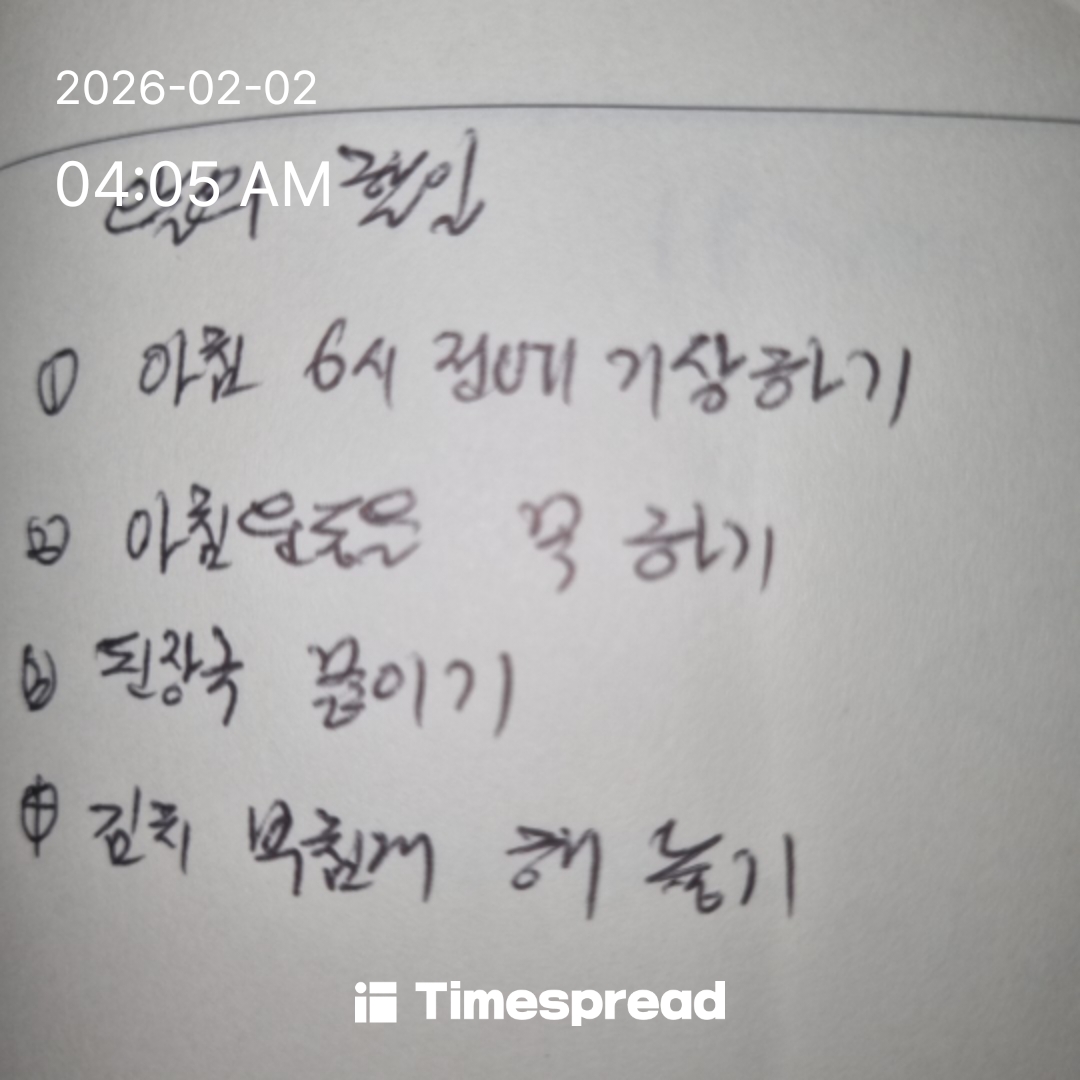 2026-02-02
04:05 AM
할일
① 아침 6시 전에 기상하기
② 아침운동을 꼭 하기
③ 된장국 끓이기
④ 김치 부침개 해 놓기
Timespread